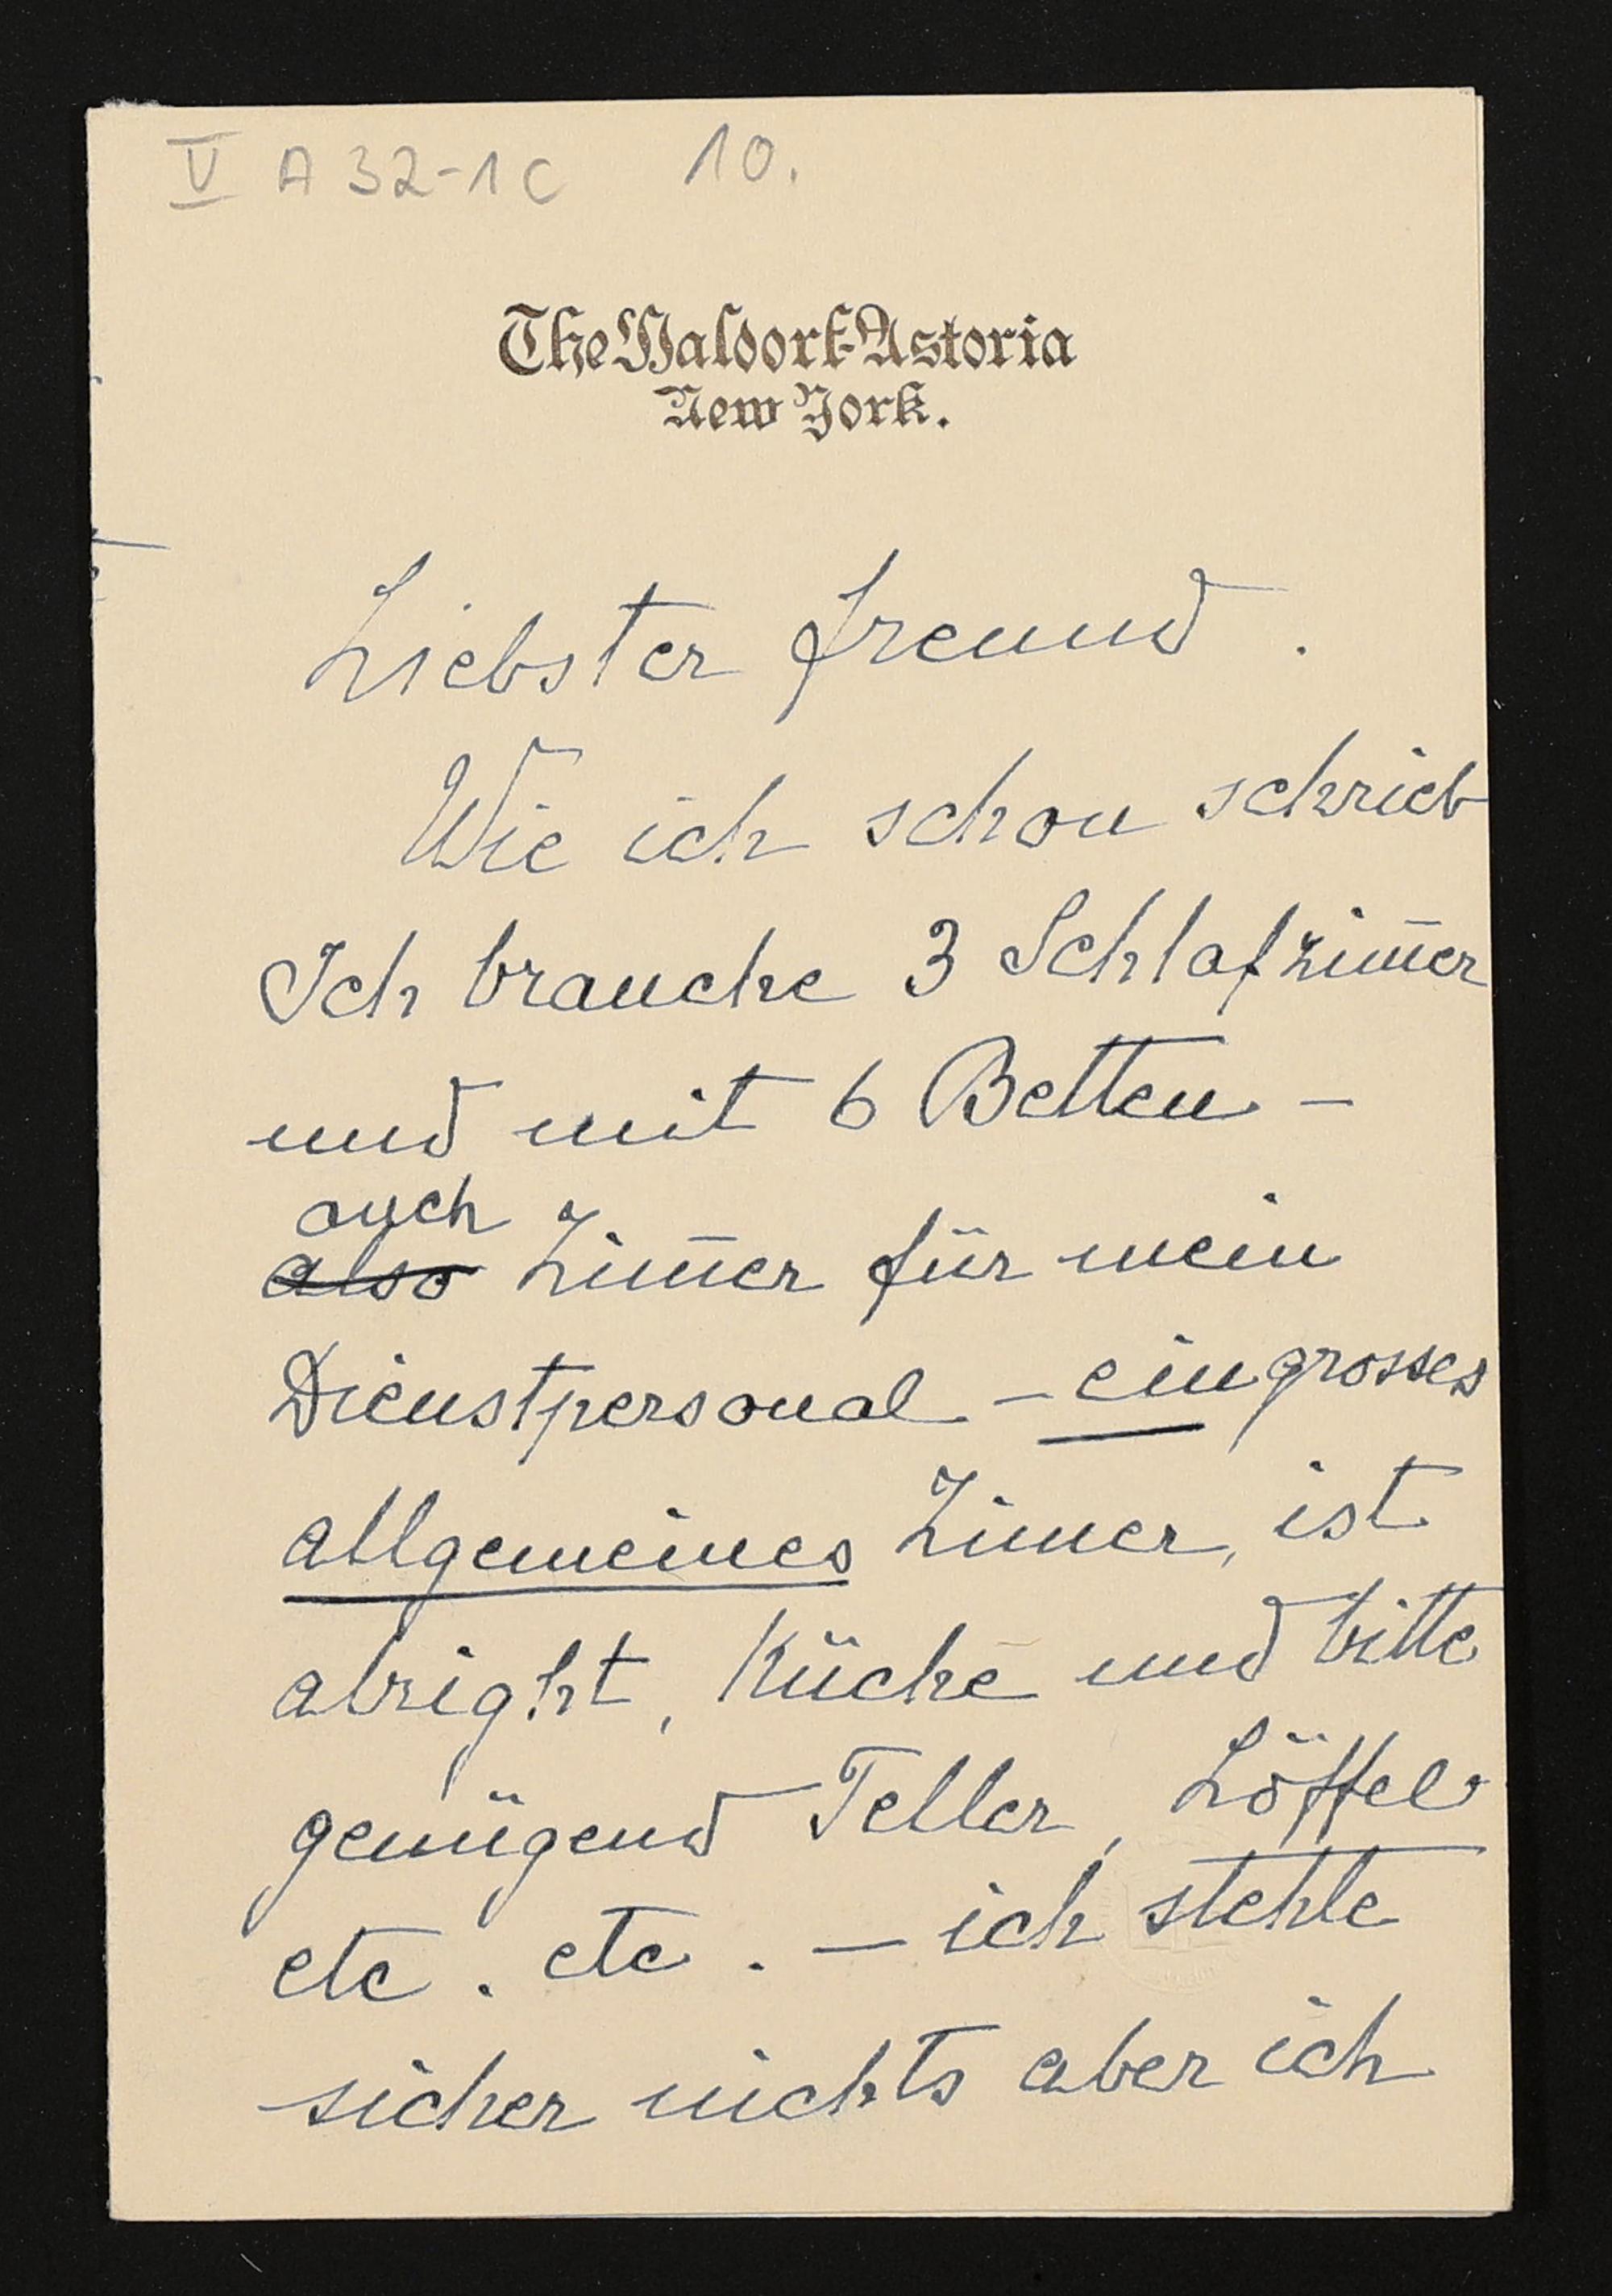 V A 32-1c 10.
The Waldorf-Astoria
New York.
Liebster Freund.
Wie ich schon schrieb
Ich brauche 3 Schlafzim̄er
und mit 6 Betten -
auch
also Zim̄er für mein
Dienstpersonal - ein grosses
allgemeines Zimer, ist
alright, Küche und bitte
genügend Teller, Löffel
etc. etc. - ich stehle
sicher nichts aber ich